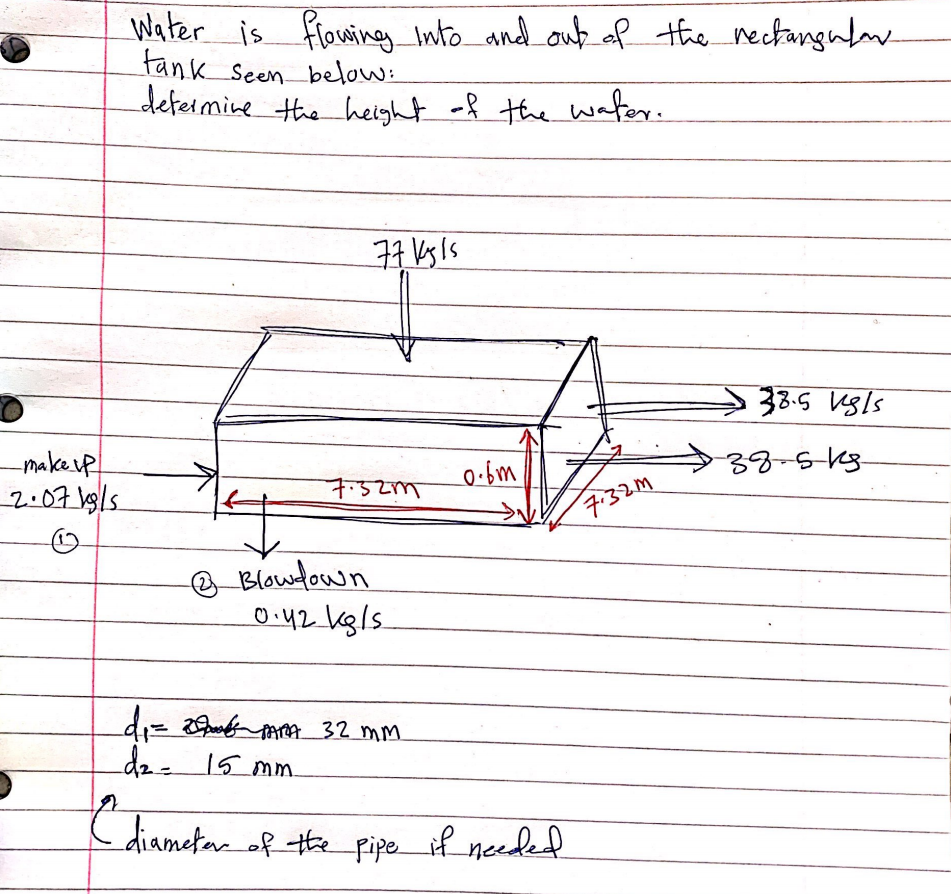 Water is flowing into and out of the rectangular
tank seen below:
determine the height of the water.
77 kg/s
38.5 kg/s
makeup
2.07 kg/s
①
7.32m
0.6m
7.32m
38.5 kg
② Blowdown
0.42 kg/s
d1= 32 mm
d2= 15 mm
diameter of the pipe if needed